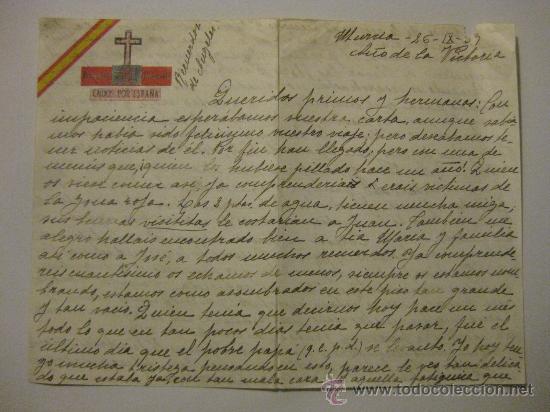 Murcia - 26-IX-39
Año de la Victoria
Recuerdos
de Angeles
CAIDOS POR ESPAÑA
Queridos primos y hermanos: Con
impaciencia esperábamos vuestra carta, aunque sabía-
mos había sido felicísimo vuestro viaje; pero deseábamos te-
ner noticias de él. Por fin han llegado; pero con una de
menús que, ¡quien los hubiese pillado hace un año! Quiene
os viera comer así, ya comprenderían erais víctimas de
la zona roja. Los 3 ptas. de agua, tienen mucha miga,
sus buenas visititas le costarían a Juan. También me
alegro hallais encontrado bien a tia Maria y familia
así como a José, a todos muchos recuerdos. Ya comprende
reis cuantísimo os echamos de menos, siempre os estamos nom
brando, estamos como asombrados en este piso tan grande
y tan vacio. Quien tenia que decirnos hoy hace un mes
todo lo que en tan pocos dias tenia que pasar, fué el
último dia que el pobre papá (q.e.p.d.) se levantó. Yo hoy ten
go mucha tristeza pensando en esto, parece le veo tan delica
do que estaba ya, con tan mala cara y aquella fatiguica que
todocoleccion.net